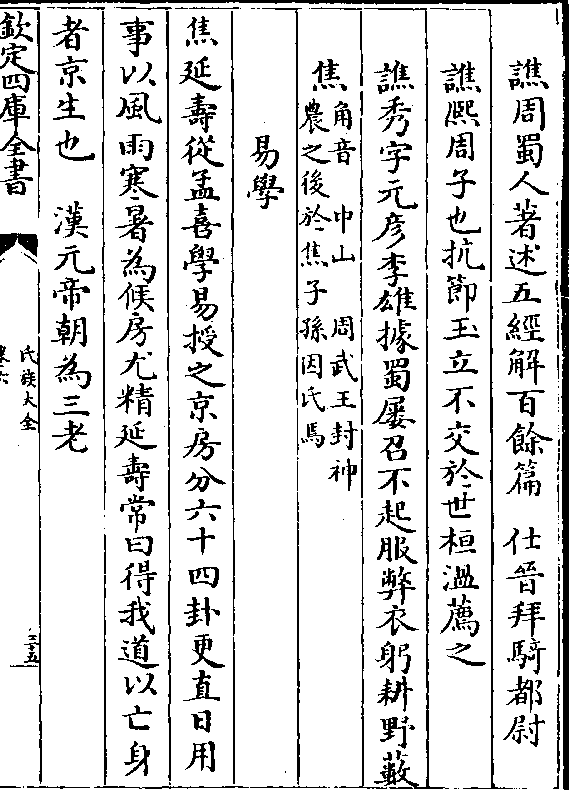 譙周蜀人著述五經解百餘篇　仕晉拜騎都尉
譙熈周子也抗節玉立不交於世桓溫薦之
譙秀字元彦李雄據蜀屢召不起服弊衣躬耕野藪
焦角音　中山　周武王封神
農之後於焦子孫因氏焉
易學
焦延壽從孟喜學易授之京房分六十四卦更直日用
事以風雨寒暑為候房尤精延壽常曰得我道以亡身
者京生也　漢元帝朝為三老
欽定四庫全書
氏族大全
卷六
三五